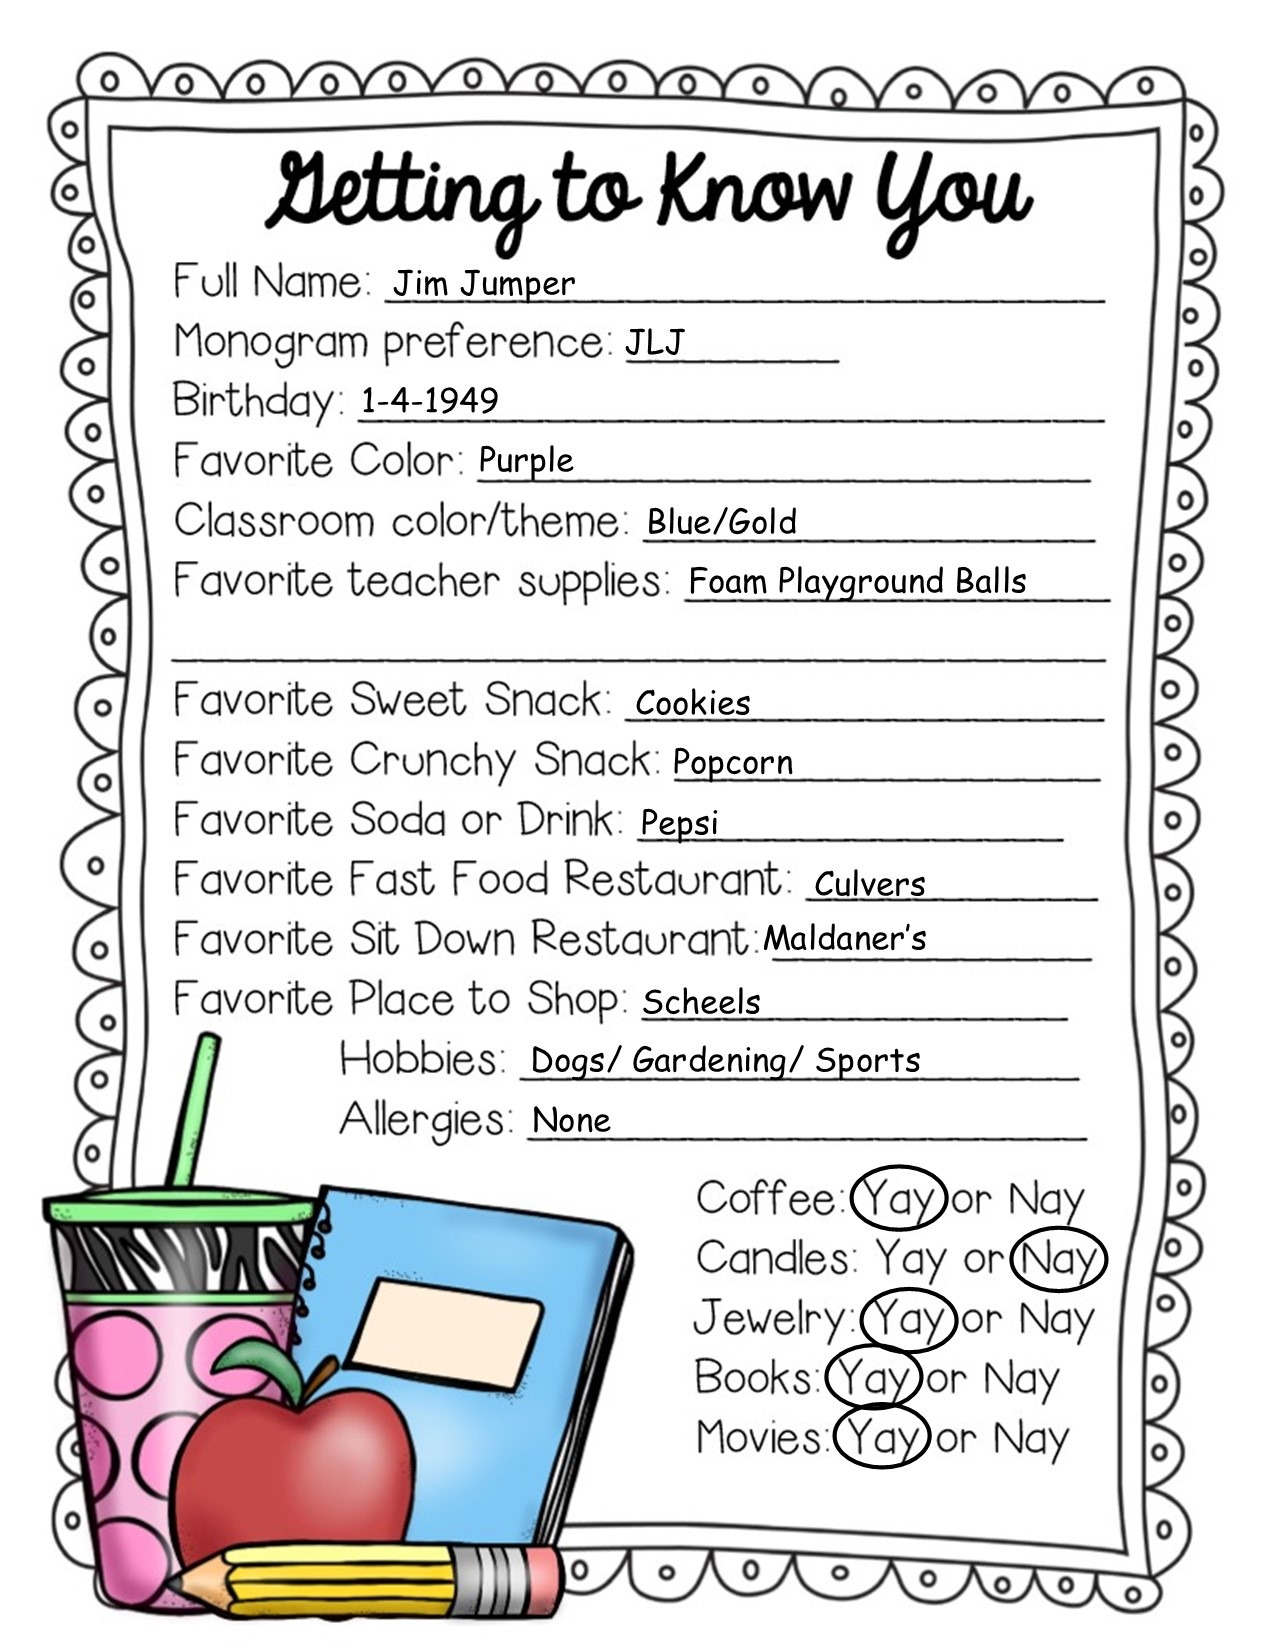 Getting to Know You
Full Name: Jim Jumper
Monogram preference: JLJ
Birthday: 1-4-1949
Favorite Color: Purple
Classroom color/theme: Blue/Gold
Favorite teacher supplies: Foam Playground Balls
Favorite Sweet Snack: Cookies
Favorite Crunchy Snack: Popcorn
Favorite Soda or Drink: Pepsi
Favorite Fast Food Restaurant: Culvers
Favorite Sit Down Restaurant: Maldaner's
Favorite Place to Shop: Scheels
Hobbies: Dogs/ Gardening/ Sports
Allergies: None
Coffee: Yay or Nay
Candles: Yay or Nay
Jewelry: Yay or Nay
Books: Yay or Nay
Movies: Yay or Nay